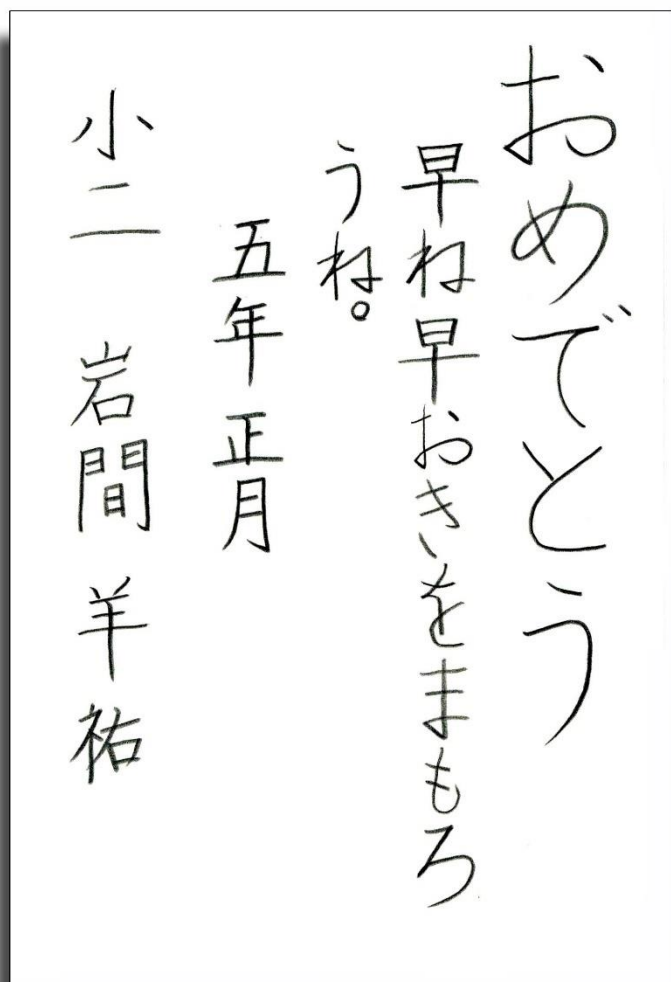 おめでとう
早ね早おきをまもろ
うね。
五年正月
小二 岩間羊祐